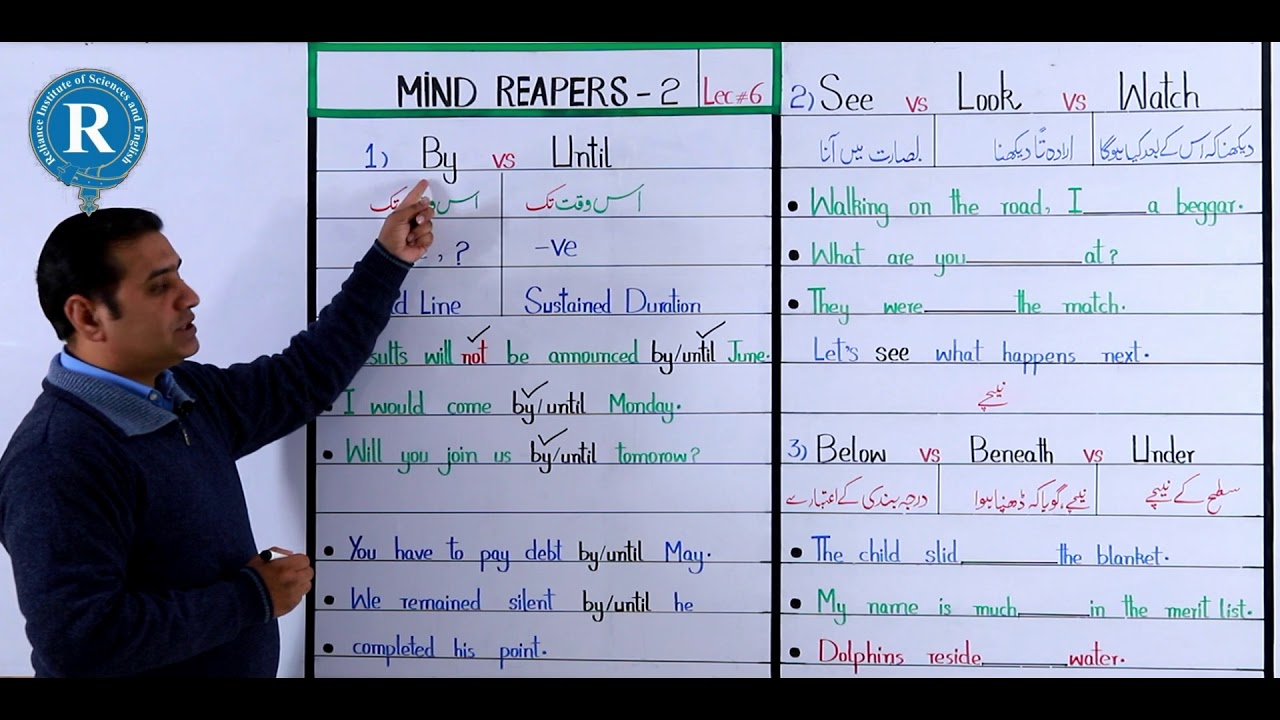 Reliance Institute of Sciences and English
R
MIND REAPERS - 2
Lec#6
1) By vs Until
تک
اس وقت تک
, ?
-ve
Line
Sustained Duration
will not be announced by/until June.
I would come by/until Monday.
Will you join us by/until tomorow?
You have to pay debt by/until May.
We remained silent by/until he
completed his point.
2) See vs Look vs Watch
بصارت میں آنا
ارادہ تاً دیکھنا
دیکھنا کہ اس کے بعد کیا ہوگا
Walking on the road, I______a beggar.
What are you__________at?
They were________the match.
Let's see what happens next.
نیچے
3) Below vs Beneath vs Under
درجہ بندی کے اعتبار سے
نیچے، گویا کہ ڈھنپا ہوا
سطح کے نیچے
The child slid________the blanket.
My name is much______in the merit list.
Dolphins reside_______water.